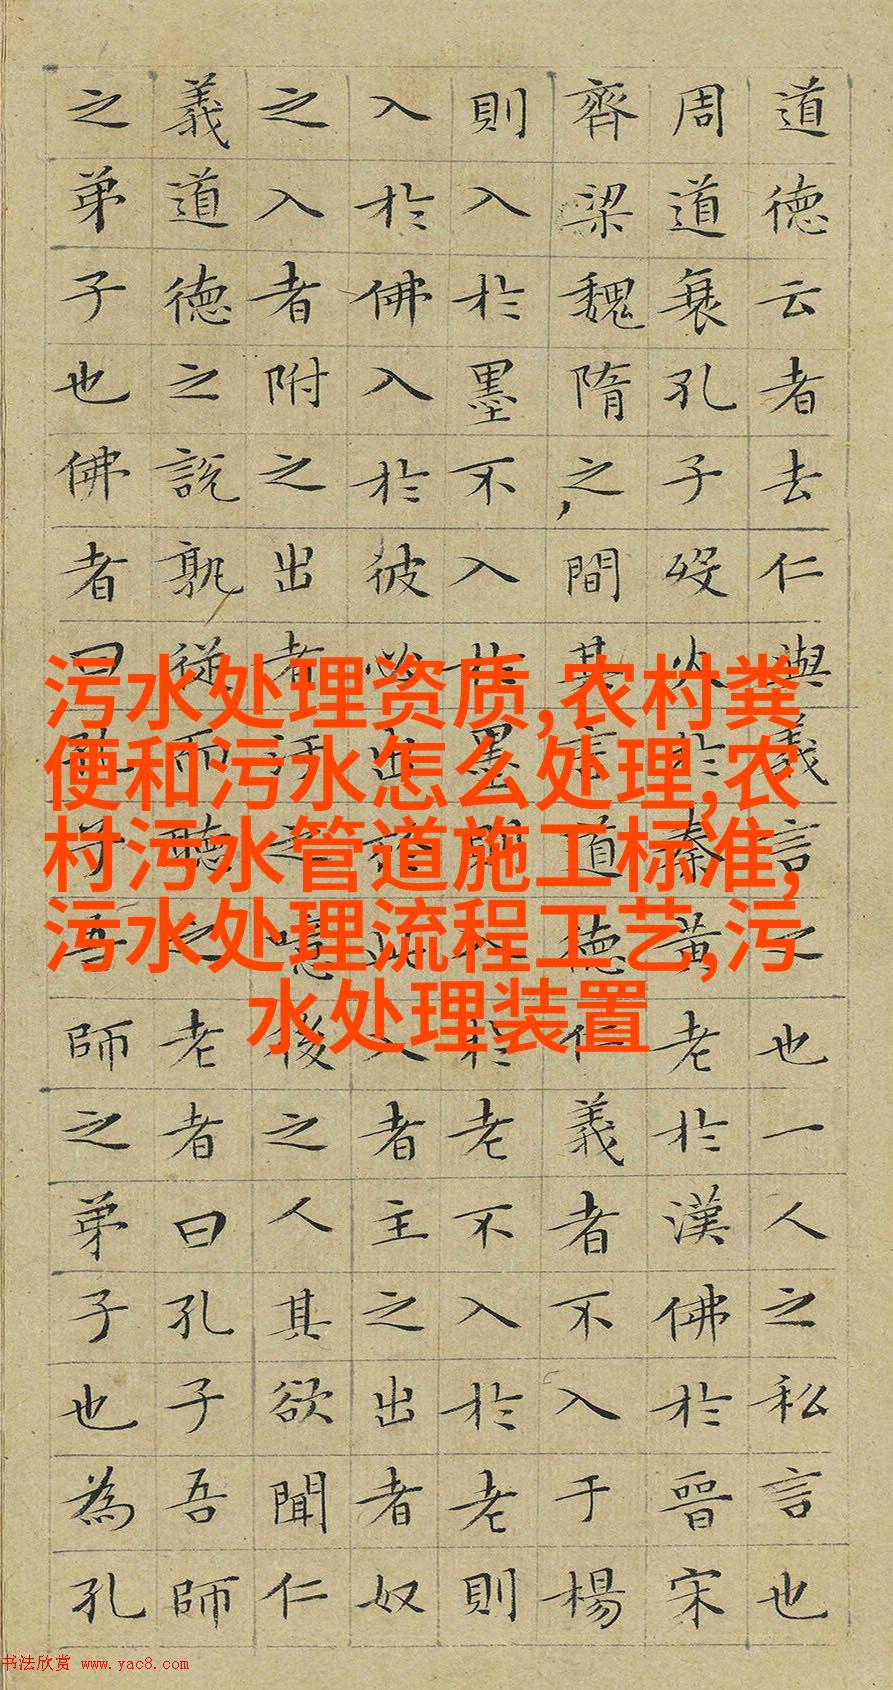 道德云者去仁與義言之也一人之私言也
周道衰孔子歿火於秦黃老於漢佛於晉宋
齊梁魏隋之間其言道德仁義者不入于楊
則入於墨不入於墨則入於老不入於老則
入於佛入於彼必出於此入者主之出者奴
之入者附之出者汙之噫後之人其欲聞仁
義道德之說孰從而聽之老者曰孔子吾師
之弟子也佛者曰孔子吾師之弟子也為孔
污水处理资质,农村粪
便和污水怎么处理,农
村污水管道施工标准,
污水处理流程工艺,污
水处理装置
书法欣赏 www.yac8.com